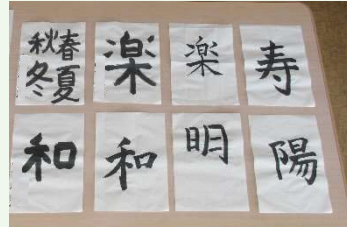 春夏
秋冬
楽
楽
寿
和
和
明
陽